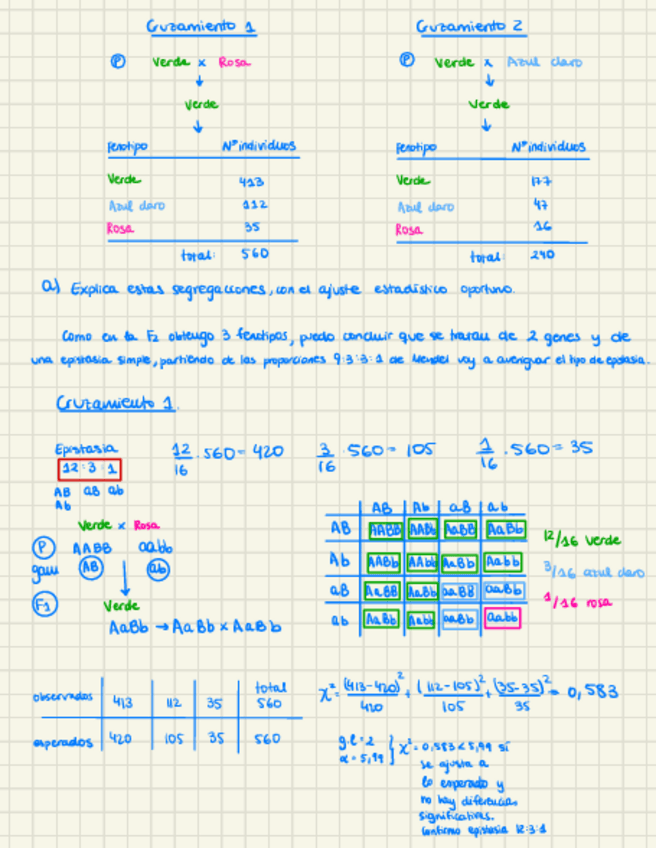 Cruzamiento 1
Cruzamiento 2
P Verde x Rosa
P Verde x Azul claro
Verde
Verde
Fenotipo Nº individuos
Fenotipo Nº individuos
Verde 413
Verde 177
Azul claro 112
Azul claro 47
Rosa 35
Rosa 16
total: 560
total: 240
a) Explica estas segregaciones, con el ajuste estadístico oportuno.
Como en la F2 obtengo 3 fenotipos, puedo concluir que se tratan de 2 genes y de
una epistasia simple, partiendo de las proporciones 9:3:3:1 de Mendel voy a averiguar el tipo de epistasia.
Cruzamiento 1.
Epistasia
12/16 · 560 = 420
3/16 · 560 = 105
1/16 · 560 = 35
12:3:1
AB aB ab
Ab
Verde x Rosa
P AABB aabb
gam AB ab
F1 Verde
AaBb → AaBb x AaBb
AB Ab aB ab
AB AABB AABb AaBB AaBb
Ab AABb AAbb AaBb Aabb
aB AaBB AaBb aaBB aaBb
ab AaBb Aabb aaBb aabb
12/16 verde
3/16 azul claro
1/16 rosa
observados 413 112 35 total 560
esperados 420 105 35 560
χ² = (413-420)²/420 + (112-105)²/105 + (35-35)²/35 = 0,583
g.l = 2
α = 5,99
χ² = 0,583 < 5,99 sí
se ajusta a
lo esperado y
no hay diferencias
significativas.
Confirmo epistasia 12:3:1